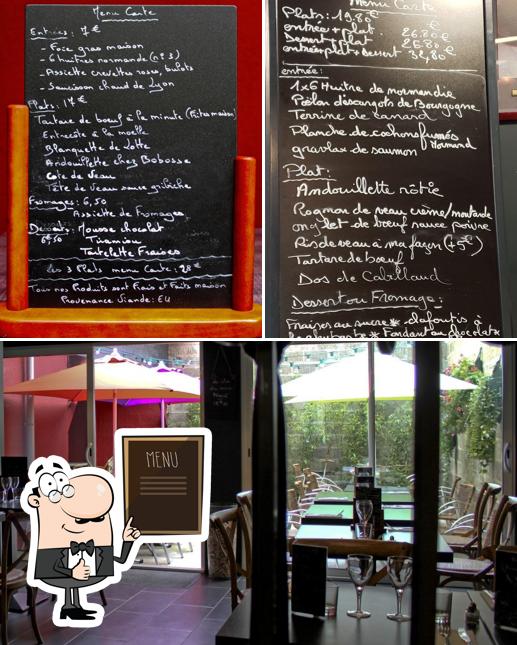 Menu Carte
Entrées: 7 €
- Foie gras maison
- 6 huitres normande (n°3)
- Assiette crevettes roses, bulots
- Saucisson chaud de Lyon
Plats: 17 €
Tartare de boeuf à la minute (Frites maison)
Entrecôte à la moelle
Blanquette de Lotte
Andouillette chez Bobosse
Cote de Veau
Tête de Veau sauce gribiche
Fromages: 6,50
Assiette de Fromages
Desserts: Mousse chocolat
6€50 Tiramisu
Tartelette Fraises
les 3 Plats menu Carte: 28 €
Tous nos Produits sont Frais et Faits maison
Provenance Viande: EU
Menu Carte
Plats: 19.80 €
entrée + plat. 26.80 €
Dessert + plat 26.80 €
entrée + plat + Dessert 32,80
entrée:
1x6 Huitre de normandie
Poêlon d'escargots de Bourgogne
Terrine de canard
Planche de cochons fumés
Normand
gravlax de saumon
Plat:
Andouillette rôtie
Rognon de veau crème/moutarde
onglet de boeuf sauce poivre
Ris de veau à ma façon (+5€)
Tartare de boeuf
Dos de Cabillaud
Dessert ou Fromage:
Fraises au sucre * clafoutis à
la rhubarbe * Fondant au chocolat *
MENU